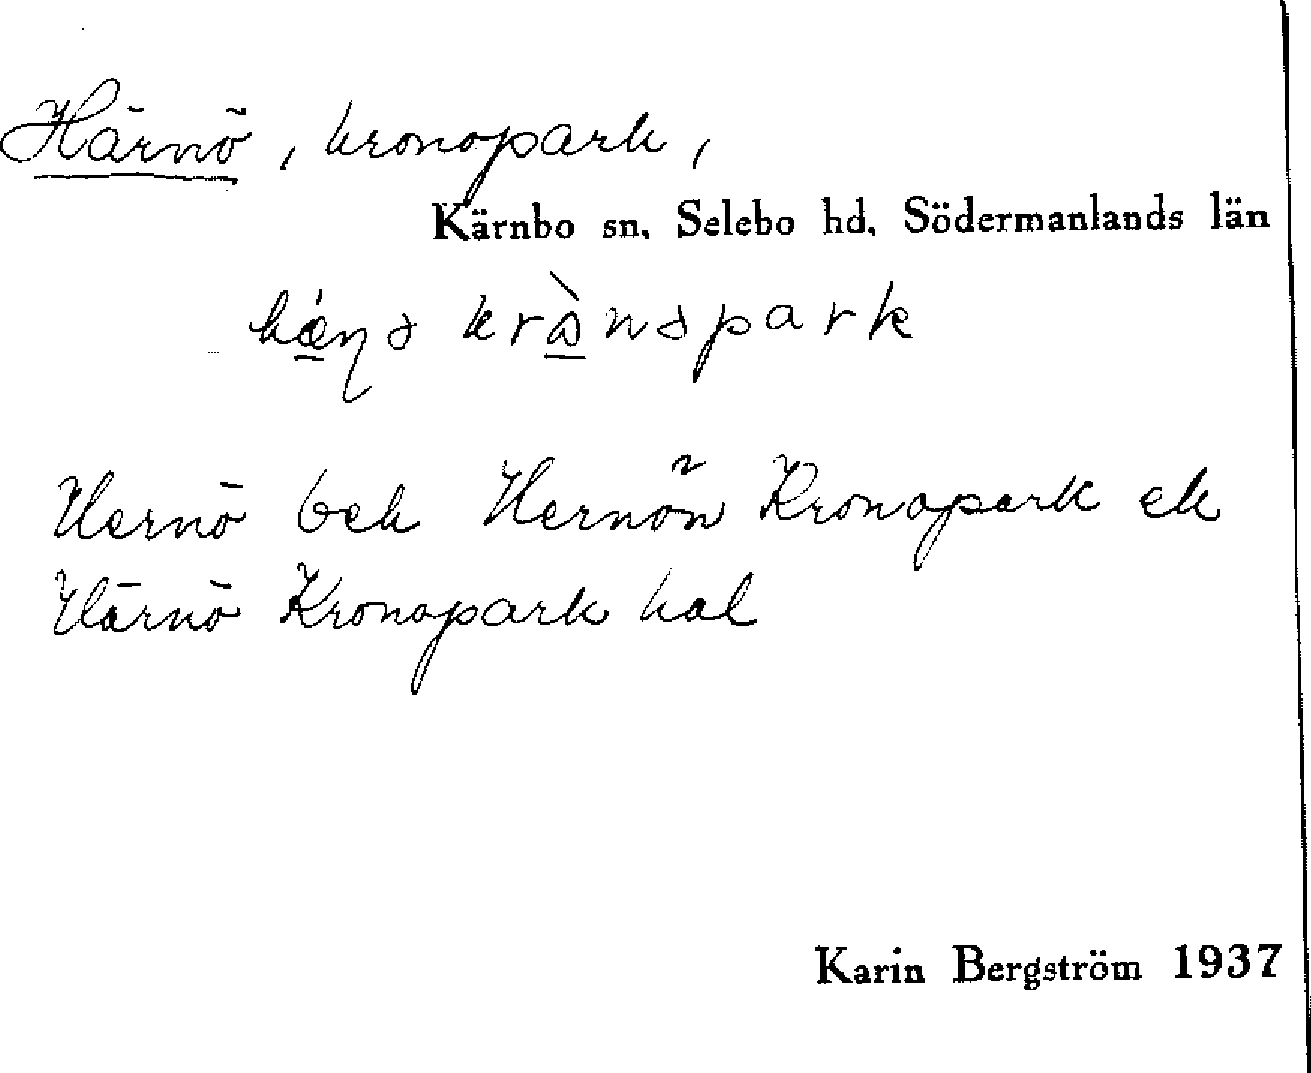 Härnö, kronopark,
Kärnbo sn. Selebo hd. Södermanlands län
krònspark
Hernö bek Hernön Kronopark ek
Härnö Kronopark hal
Karin Bergström 1937